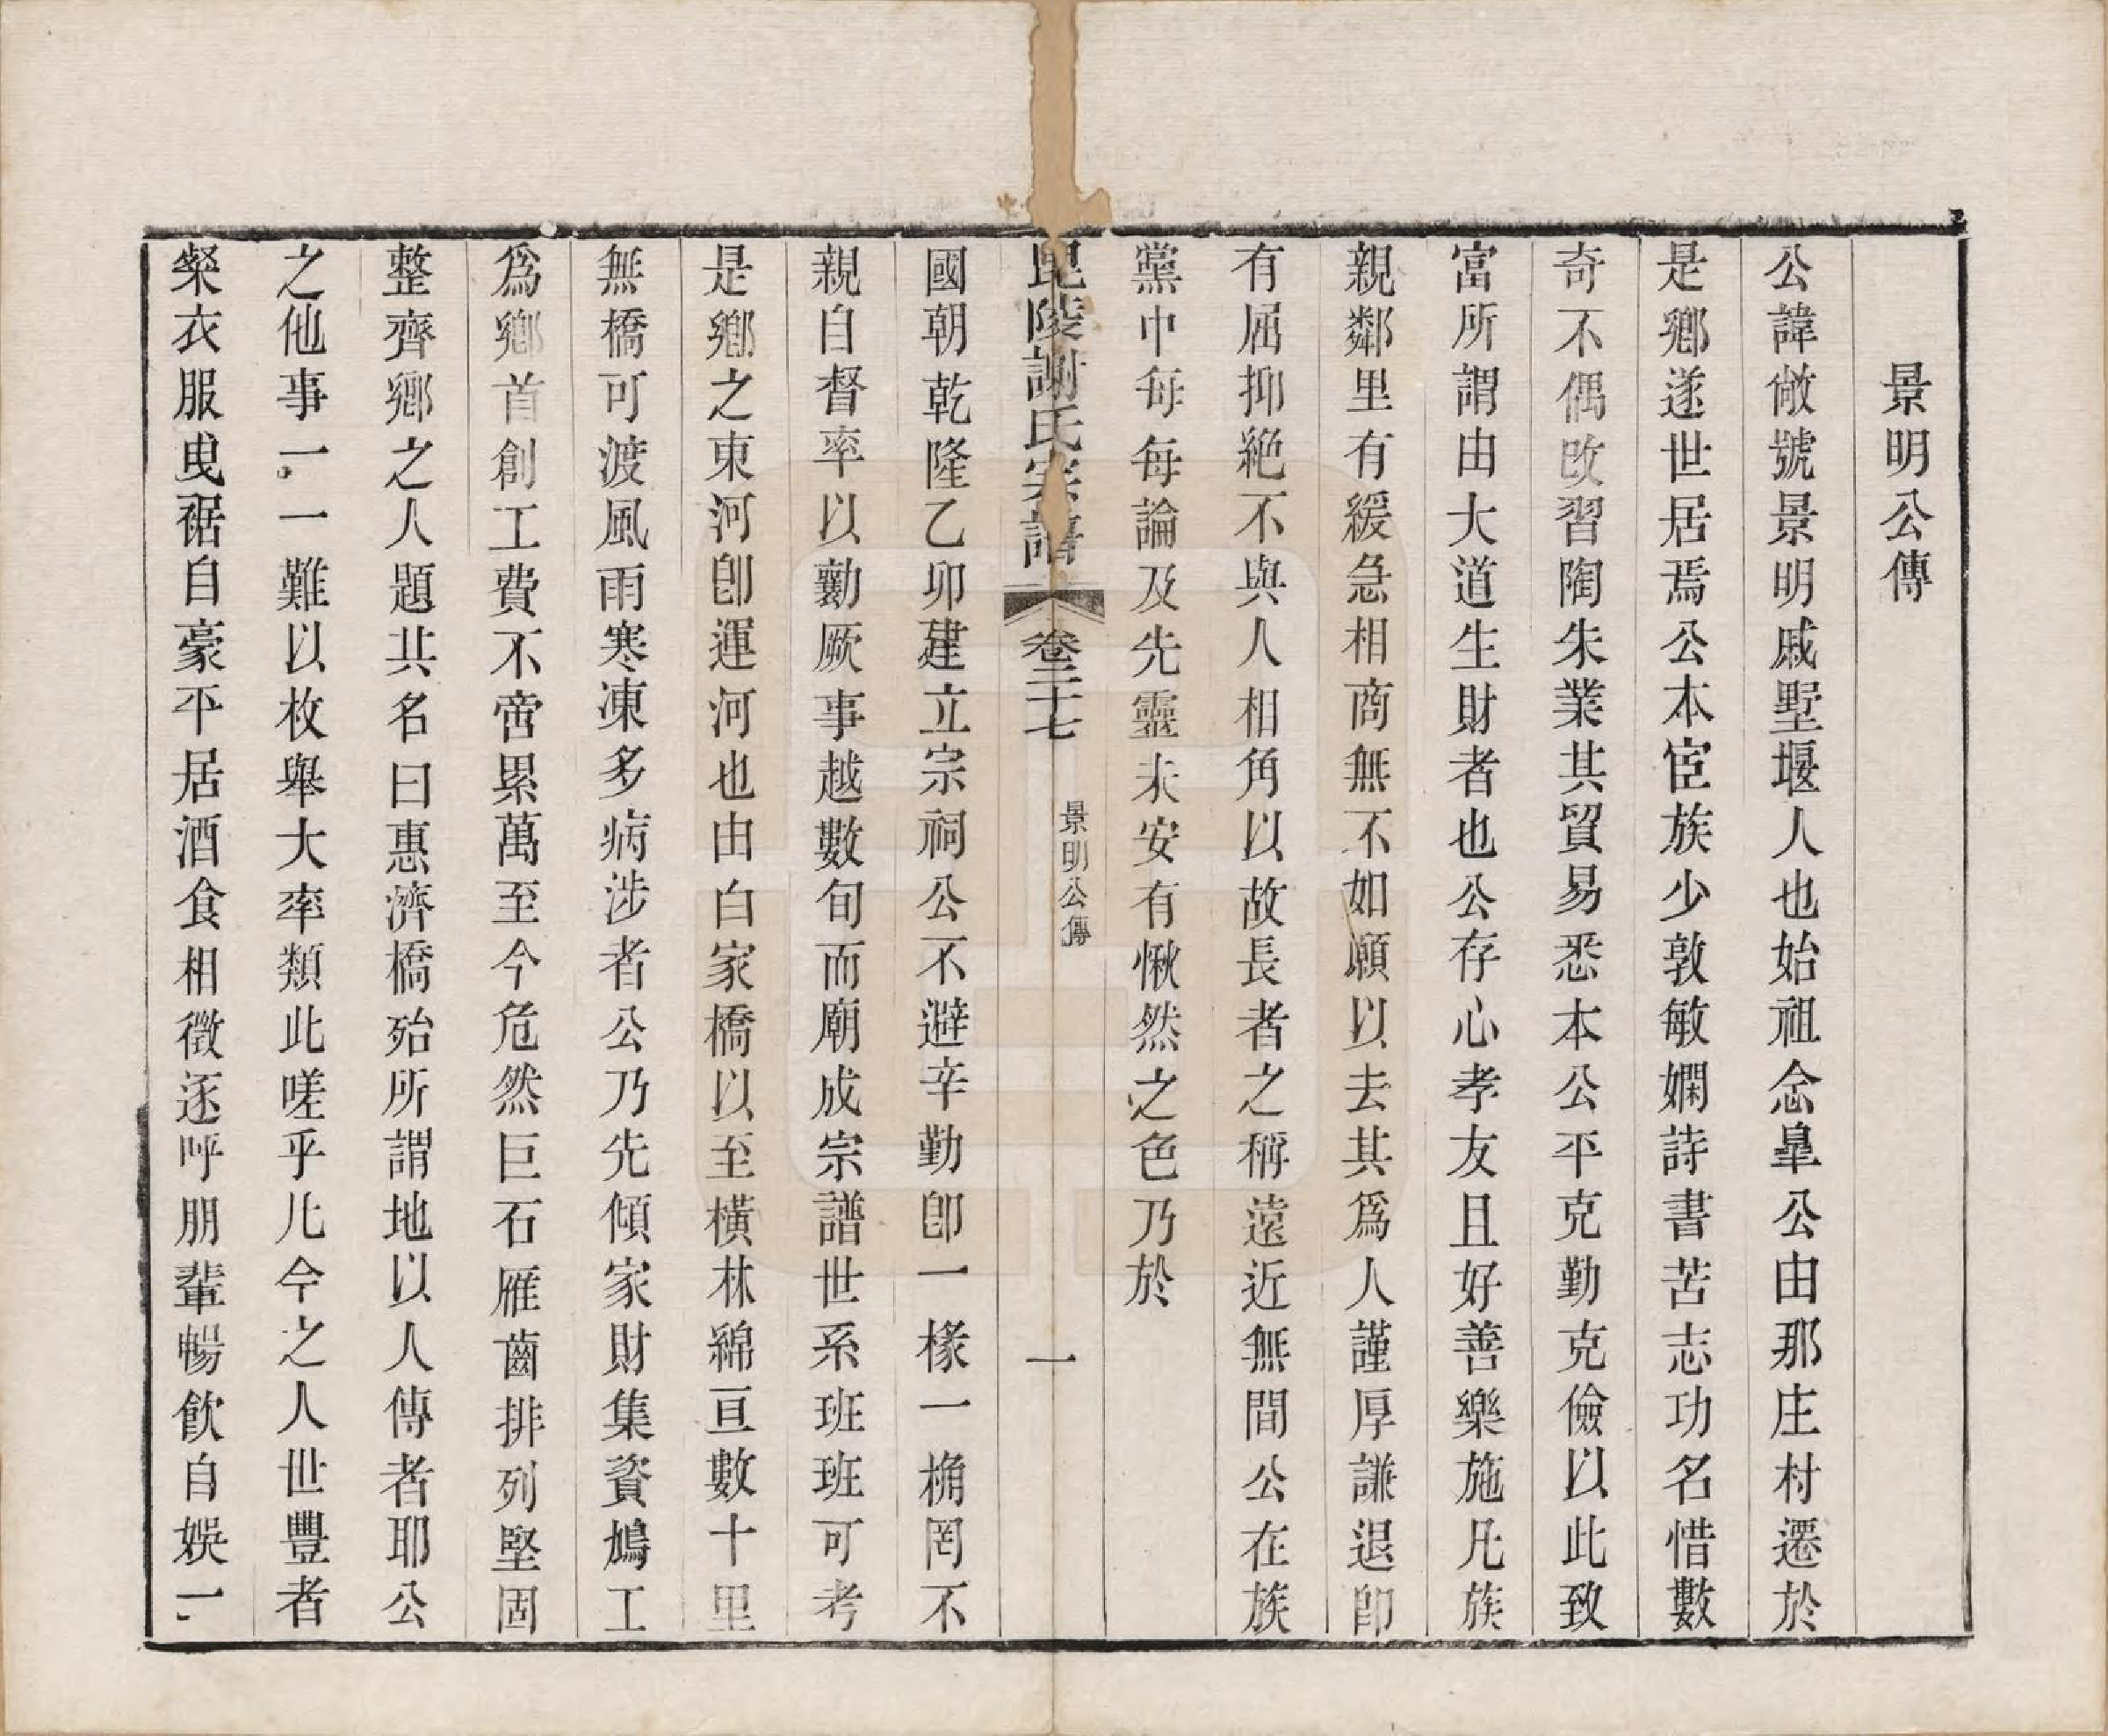 景明公傳
公諱敞號景明戚墅堰人也始祖念臯公由那庄村遷於
是鄉遂世居焉公本宦族少敦敏嫻詩書苦志功名惜數
奇不偶改習陶朱業其貿易悉本公平克勤克儉以此致
富所謂由大道生財者也公存心孝友且好善樂施凡族
親鄰里有緩急相商無不如願以去其爲人謹厚謙退卽
有屈抑絶不與人相角以故長者之稱遠近無間公在族
黨中每每論及先靈未安有愀然之色乃於
毘陵謝氏宗譜 卷二十七 景明公傳 一
國朝乾隆乙卯建立宗祠公不避辛勤卽一椽一桷罔不
親自督率以勷厥事越數旬而廟成宗譜世系班班可考
是鄉之東河卽運河也由白家橋以至橫林綿亘數十里
無橋可渡風雨寒凍多病涉者公乃先傾家財集資鳩工
爲鄉首創工費不啻累萬至今危然巨石雁齒排列堅固
整齊鄉之人題其名曰惠濟橋殆所謂地以人傳者耶公
之他事一一難以枚舉大率類此嗟乎凡今之人世豐者
粲衣服曳裾自豪平居酒食相徵逐呼朋輩暢飲自娛一